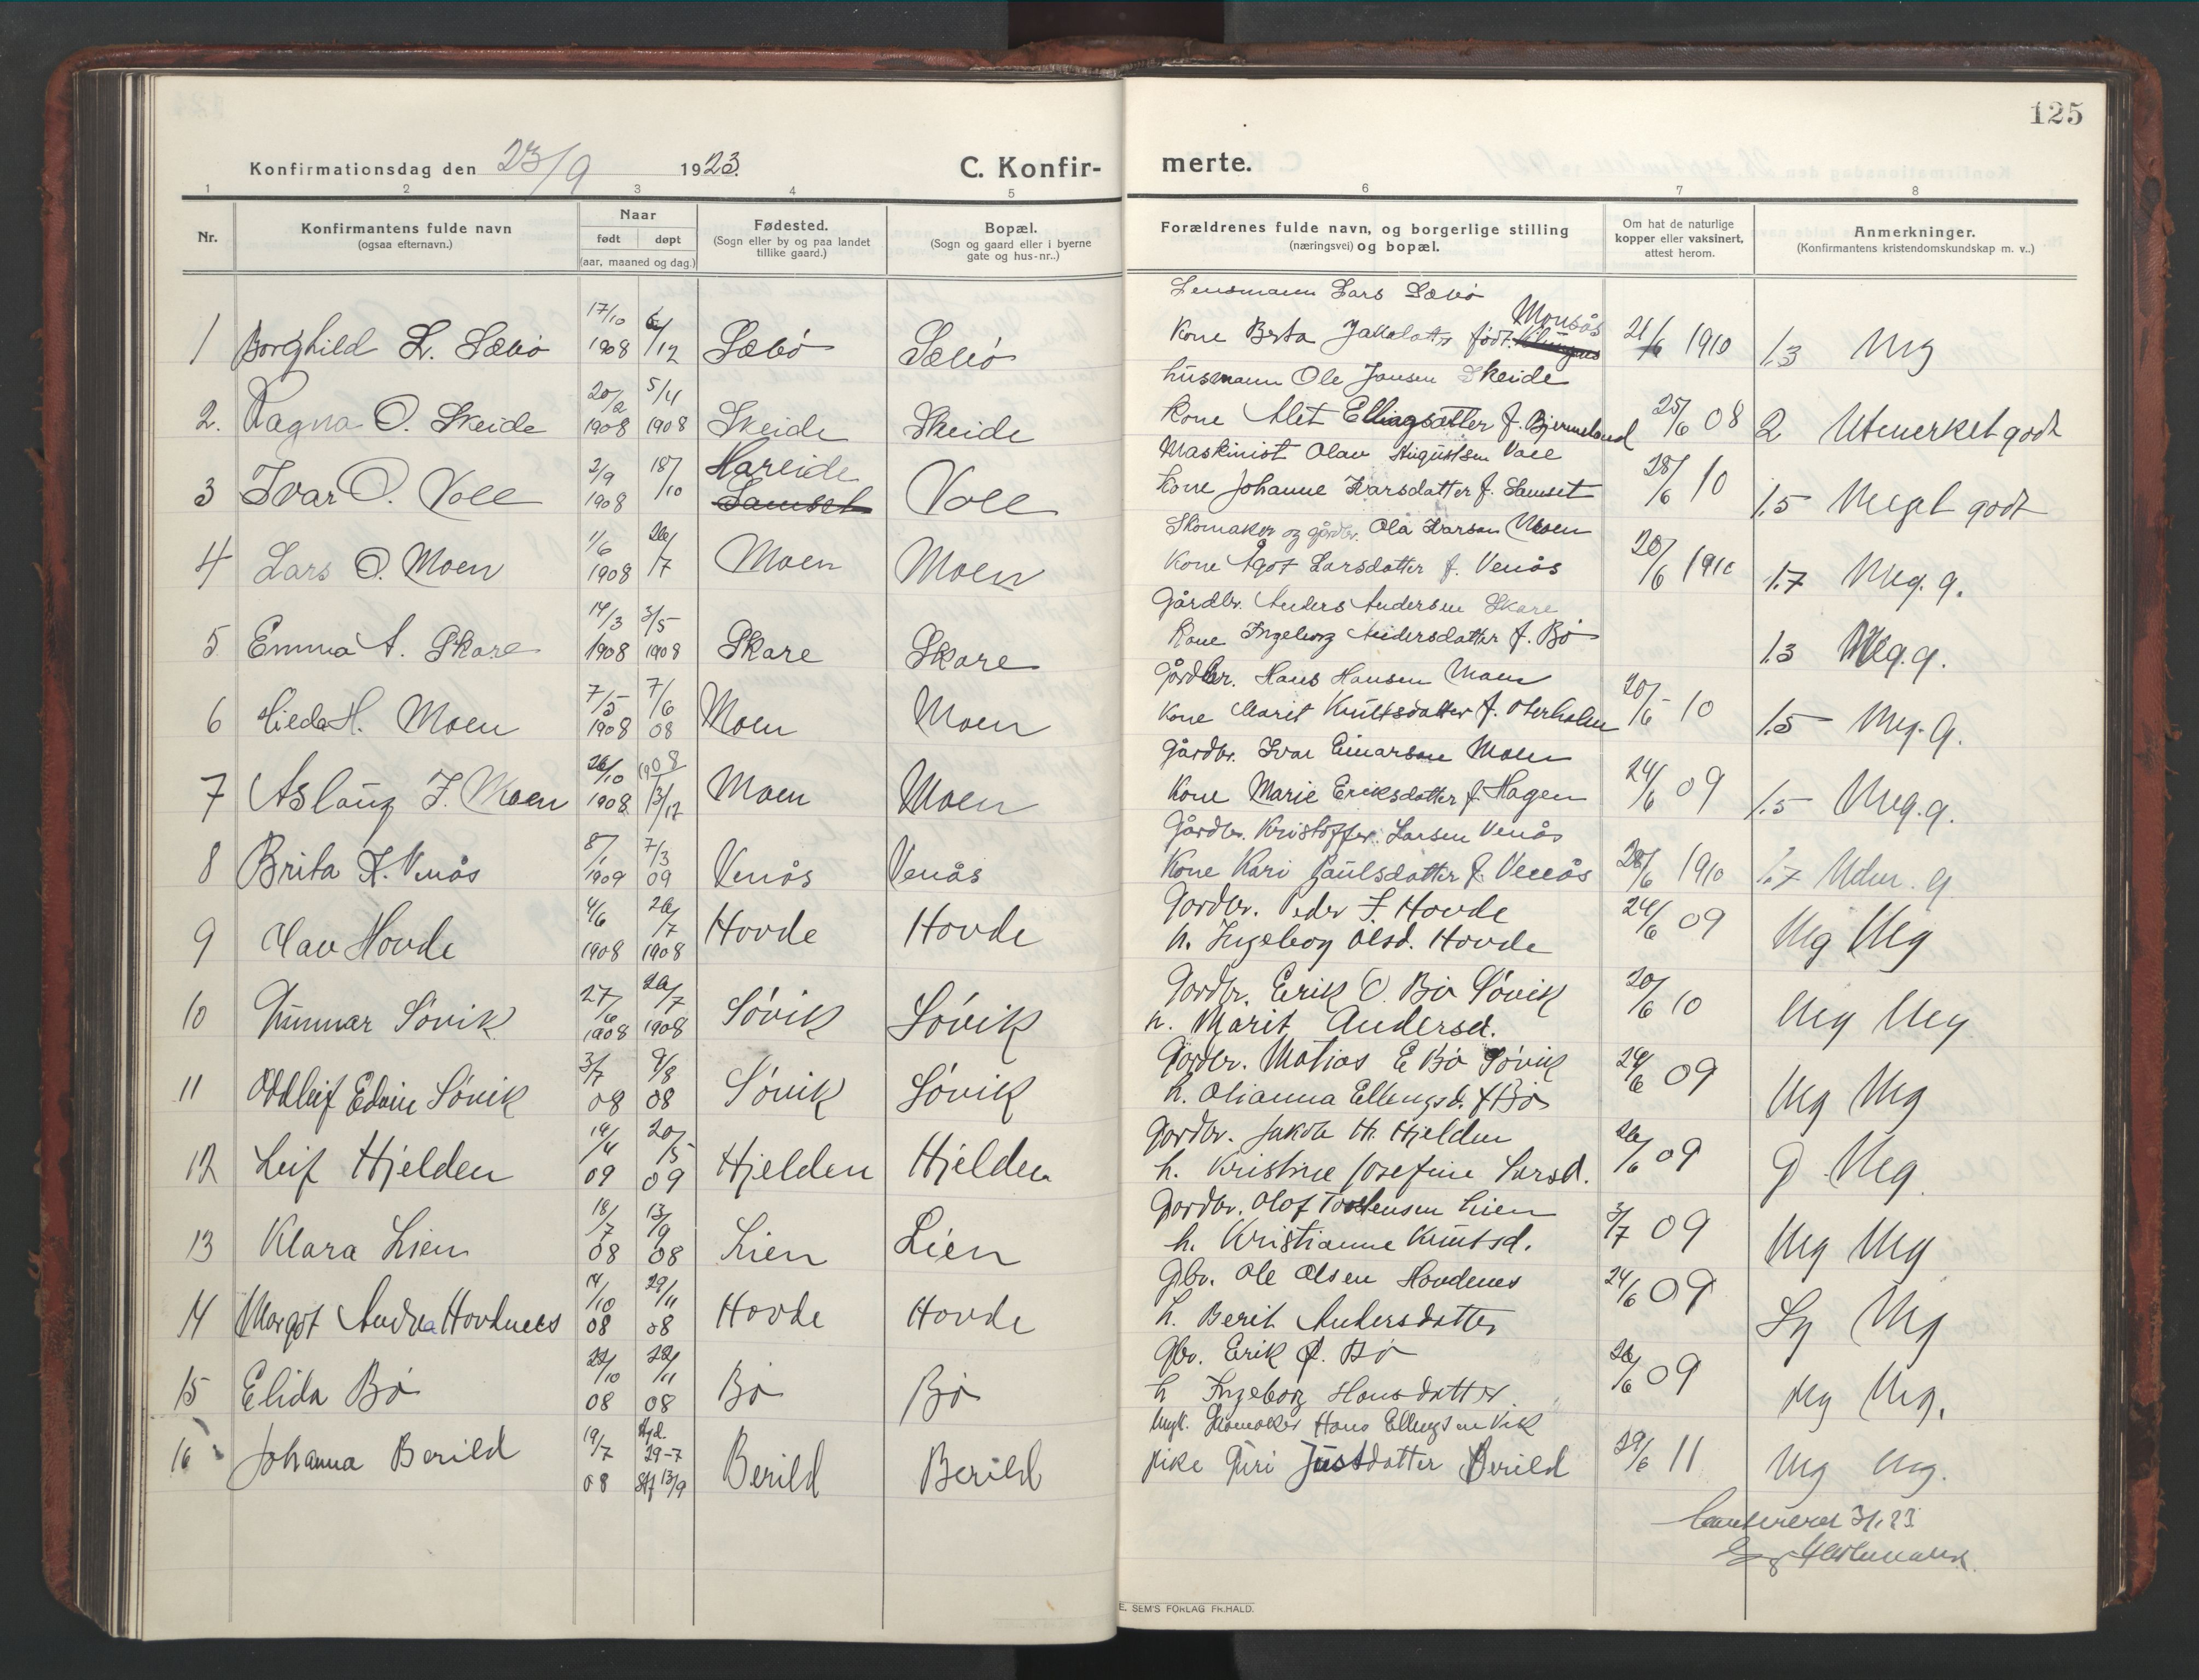 125
Konfirmationsdag den 23/9 1923.
C. Konfir-
merte.
1 2 3 4 5 6 7 8
Nr.
Konfirmantens fulde navn
(ogsaa efternavn.)
Naar
født døpt
(aar, maaned og dag.)
Fødested.
(Sogn eller by og paa landet
tillike gaard.)
Bopæl.
(Sogn og gaard eller i byerne
gate og hus-nr..)
Forældrenes fulde navn, og borgerlige stilling
(næringsvei) og bopæl.
Om hat de naturlige
kopper eller vaksinert,
attest herom.
Anmerkninger.
(Konfirmantens kristendomskundskap m. v..)
Lensmann Lars Sæbø
1 Borghild L. Sæbø 17/10 1908 6/12 Sæbø Sæbø Kone Berta født Monsås 21/6 1910 1.3 Mg
husmann Ole Jansen Skeide
2. Ragna O. Skeide 20/2 1908 5/4 1908 Skeide Skeide Kone Alet Ellingsdatter f. Bjermeland 25/6 08 2 Utmerket godt
Maskinist Olav Augustsen Voll
3 Ivar O. Voll 2/9 1908 18/10 Hareide Samset Voll Kone Johanne Ivarsdatter f. Samset 28/6 10 1.5 Meget godt
Skomaker og gårdbr. Ola Larsen Moen
4 Lars O. Moen 1/6 1908 26/7 Moen Moen Kone Ågot Larsdatter f. Venås 20/6 1910 1.7 Meg. g.
Gårdbr. Anders Andersen Skare
5 Emma A. Skare 14/3 1908 3/5 1908 Skare Skare Kone Ingeborg Andersdatter f. Bø 1.3 Meg. g.
Gårdbr. Hans Hansen Moen
6 Hilda H. Moen 7/5 1908 7/6 08 Moen Moen Kone Marit Knutsdatter f. Oterholm 20/6 10 1.5 Meg. G.
Gårdbr. Ivar Einarsen Moen
7 Aslaug I. Moen 26/10 1908 1908 13/12 Moen Moen Kone Marie Eriksdatter f. Hagen 24/6 09 1.5 Meg. g.
Gårdbr. Kristoffer Larsen Venås
8 Brita K. Venås 8/1 1909 7/3 09 Venås Venås Kone Kari Paulsdatter f. Venås 28/6 1910 1.7 g
Gardbr. Peder J. Hovde
9 Olav Hovde 4/6 1908 26/7 1908 Hovde Hovde h. Ingeborg Olsd. Hovde 24/6 09 Mg Mg
Gardbr. Erik O. Bø Søvik
10 Gunnar Søvik 27/6 1908 26/7 1908 Søvik Søvik h. Marit Andersd. 20/6 10 Mg Mg
Gardbr. Matias E Bø Søvik
11 Oddleif Edvin Søvik 3/7 08 9/8 08 Søvik Søvik h. Olianna Ellingsd. f Bø 24/6 09 Mg Mg
Gardbr. Jakob H. Hjelden
12 Leif Hjelden 14/4 09 20/5 09 Hjelden Hjelden h. Kristine Josefine Larsd. 26/6 09 G Mg
Gardbr. Olof Torstensen Lien
13 Klara Lien 18/7 08 13/9 08 Lien Lien h. Kristianne Knutsd. 3/7 09 Mg Mg
Gbr. Ole Olsen Hovdenes
14 Margot Andrea Hovdenes 14/10 08 29/11 08 Hovde Hovde h. Berit Andersdatter 24/6 09 Sg Mg
Gbr. Erik P. Bø
15 Elida Bø 22/10 08 22/11 08 Bø Bø h Ingeborg Hansdatter 26/6 09 Mg Mg.
Ungk. Skomaker Hans Ellingsen Vik
16 Johanna Berild 19/7 08 Hjd. 29-7 Stf 13/9 Berild Berild pike Guri Justdatter Berild 29/6 11 Mg Mg.
E. SEM'S FORLAG FR.HALD.